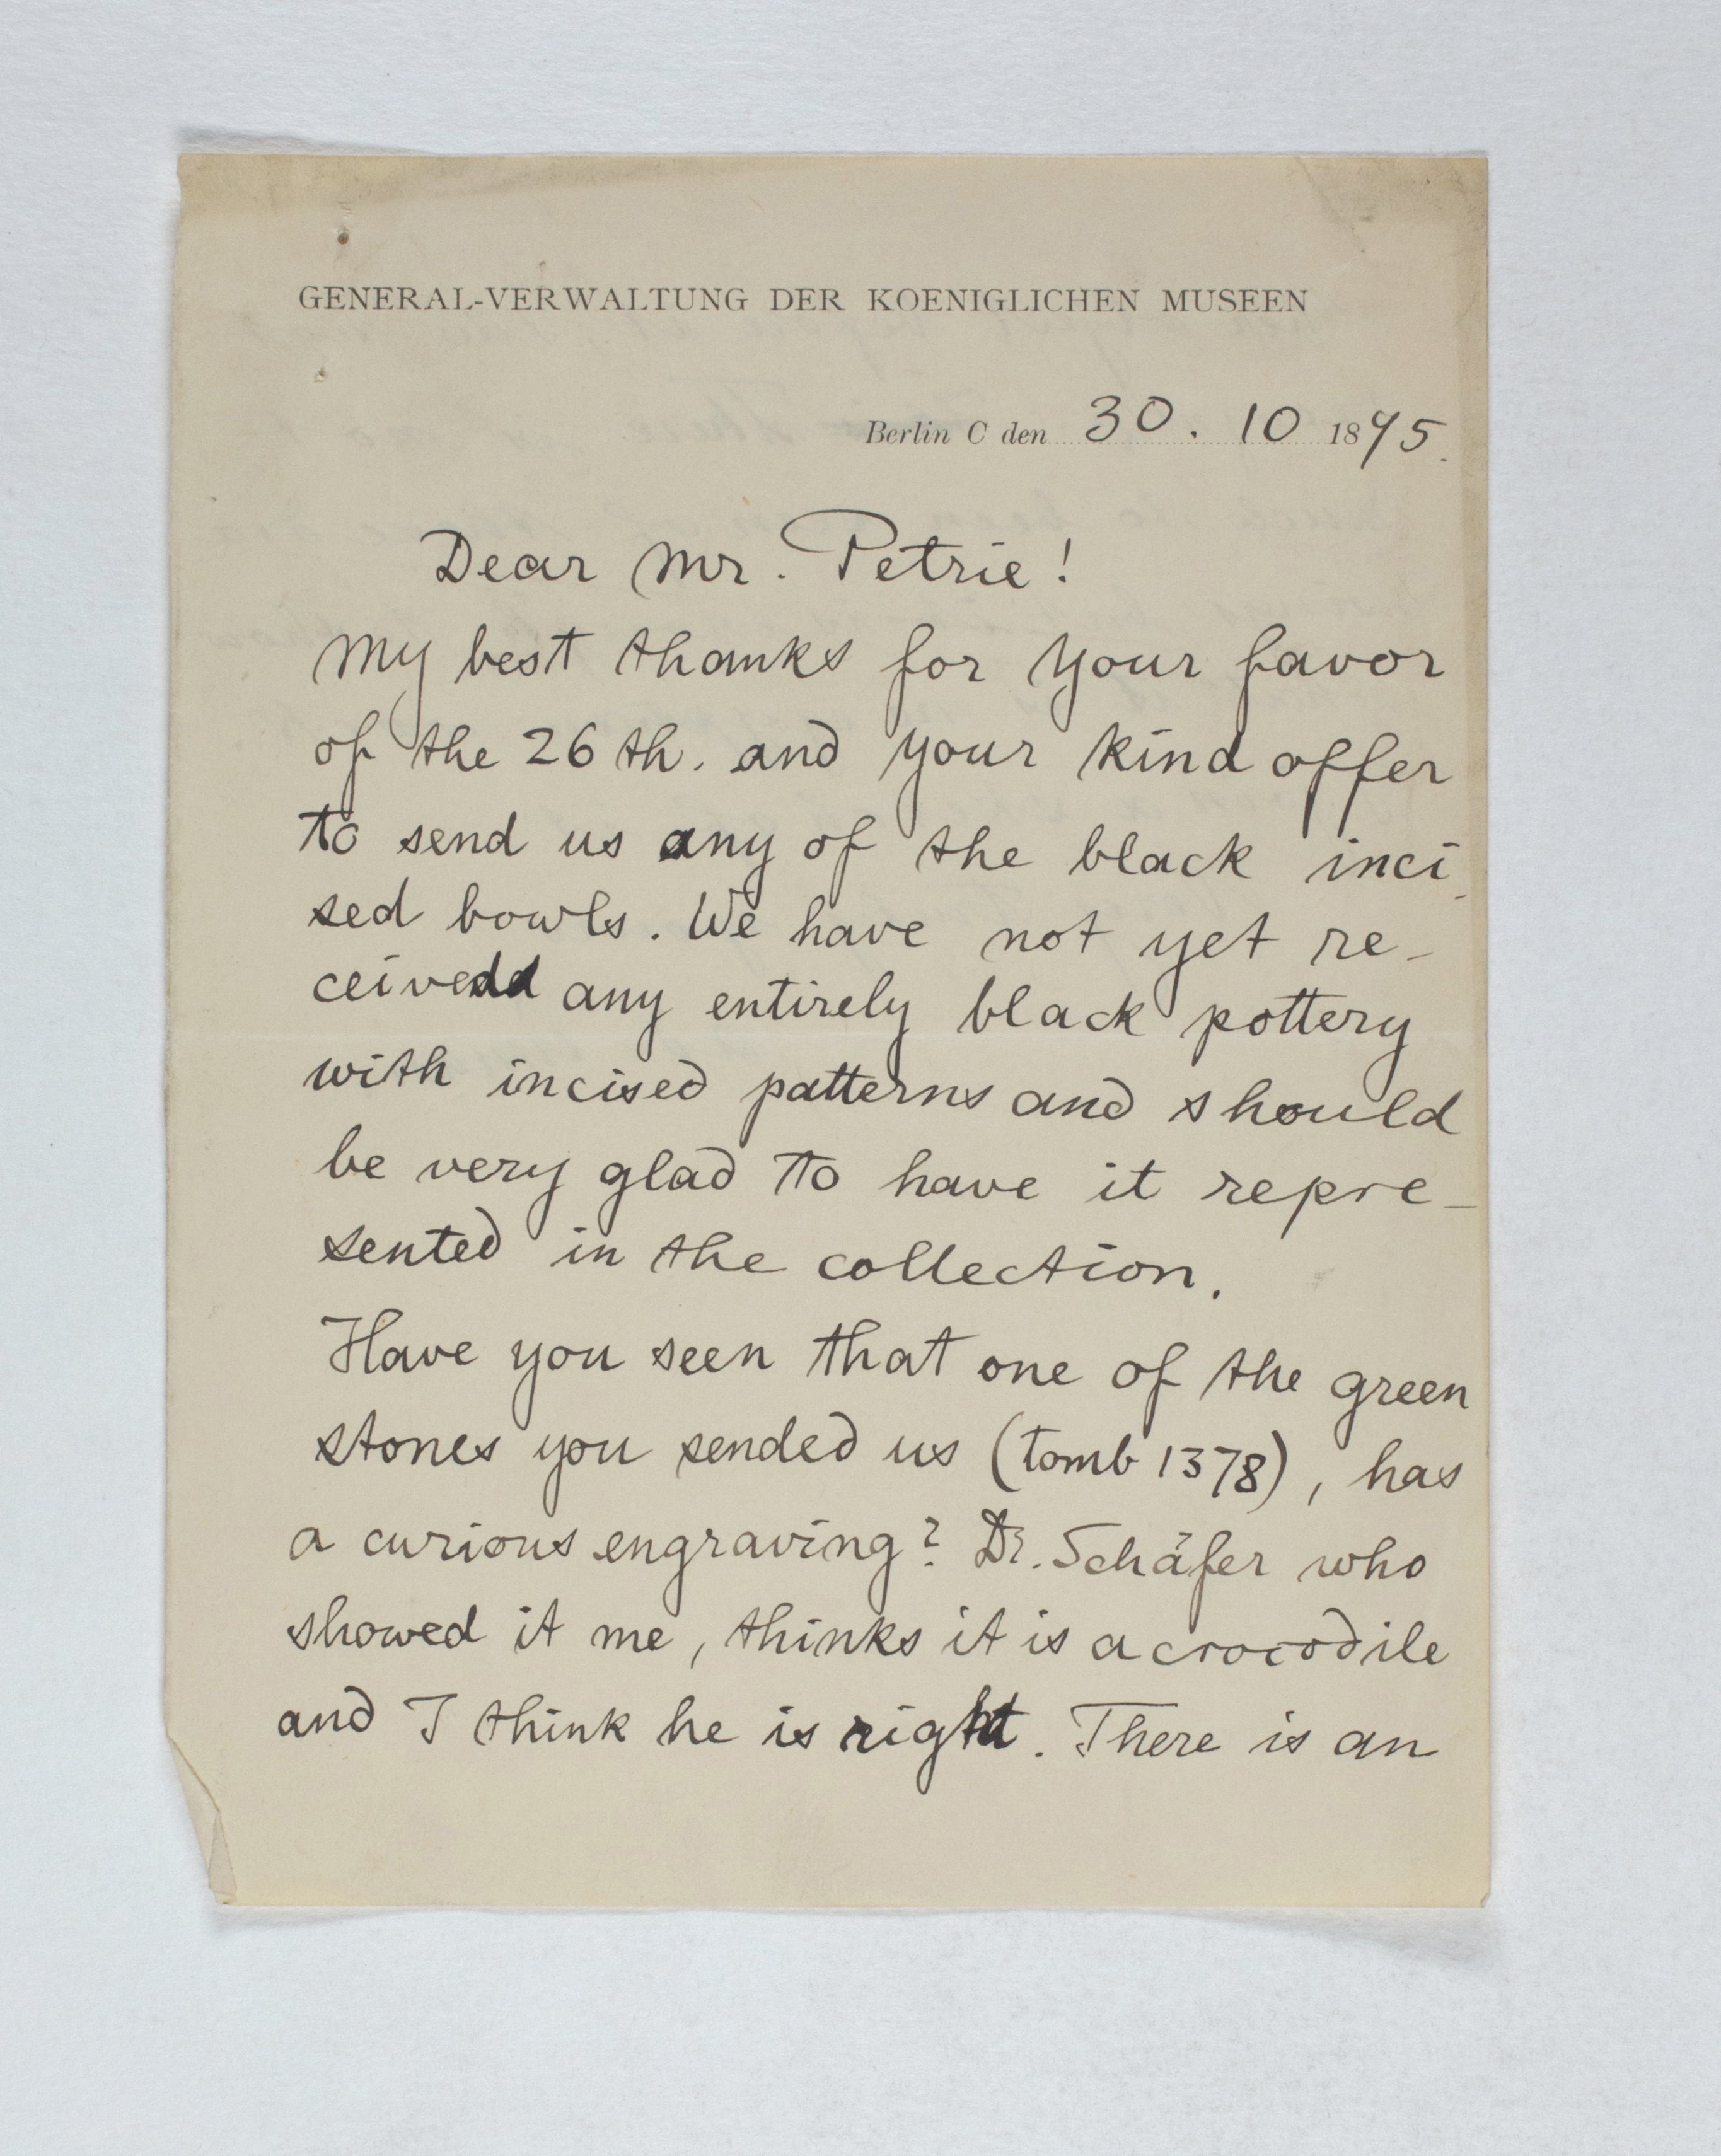 GENERAL-VERWALTUNG DER KOENIGLICHEN MUSEEN
Berlin C den 30. 10 1895.
Dear Mr. Petrie!
My best thanks for your favor
of the 26th. and your kind offer
to send us any of the black inci-
sed bowls. We have not yet re-
ceived any entirely black pottery
with incised patterns and should
be very glad to have it repre-
sented in the collection.
Have you seen that one of the green
stones you sended us (tomb 1378), has
a curious engraving? Dr. Schäfer who
showed it me, thinks it is a crocodile
and I think he is right. There is an